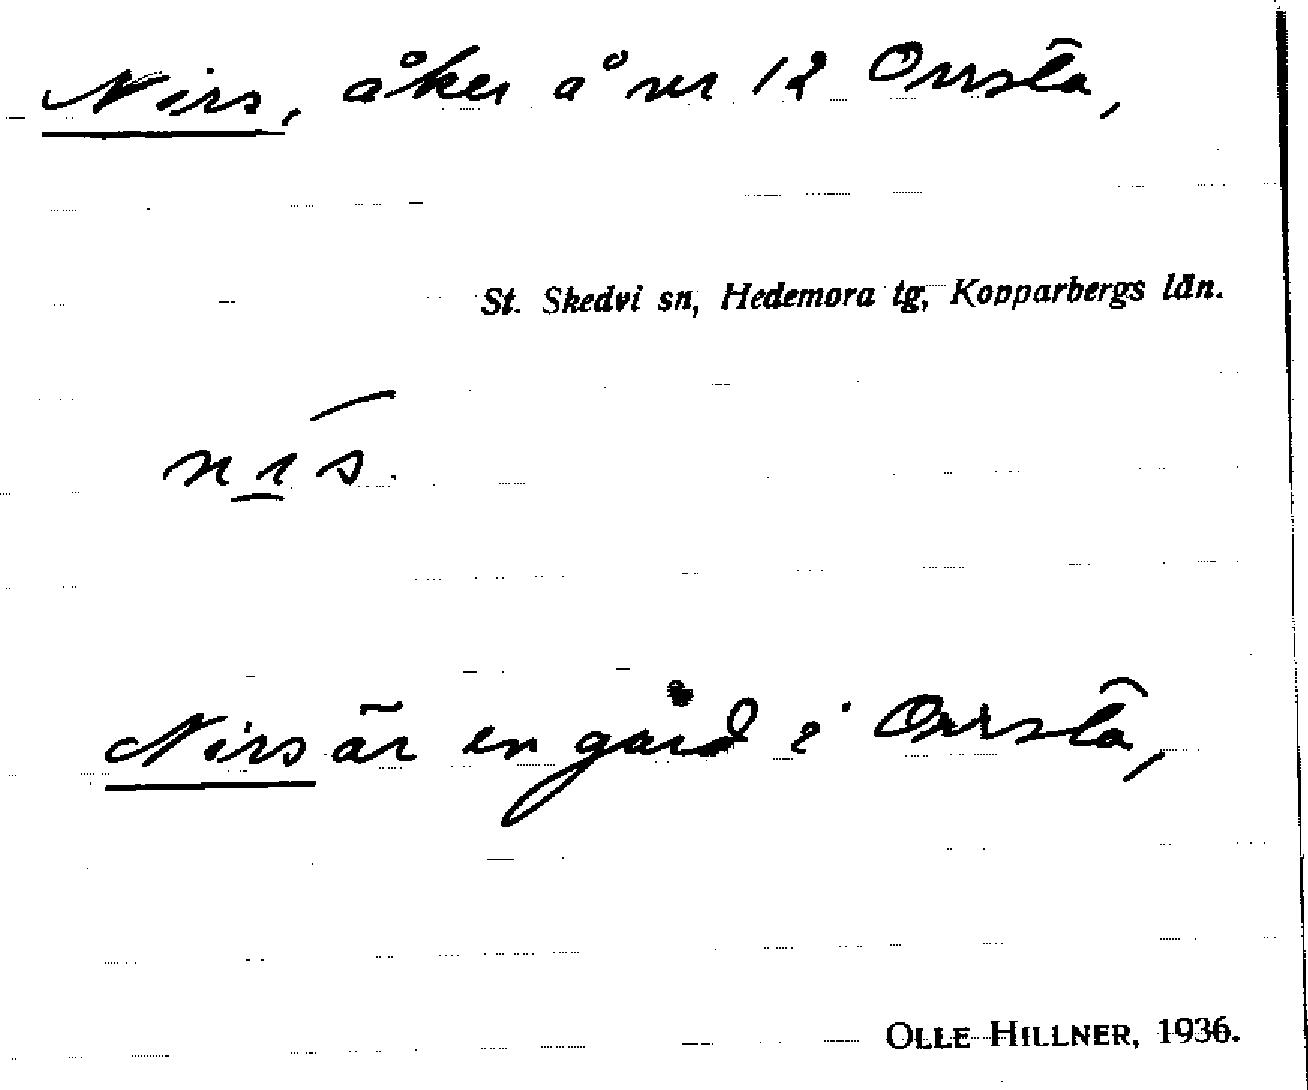 Nirs, åker å nr 12 Orrsta,
St. Skedvi sn, Hedemora tg, Kopparbergs län.
Nirs är en gård i Orrsta,
OLLE HILLNER, 1936.